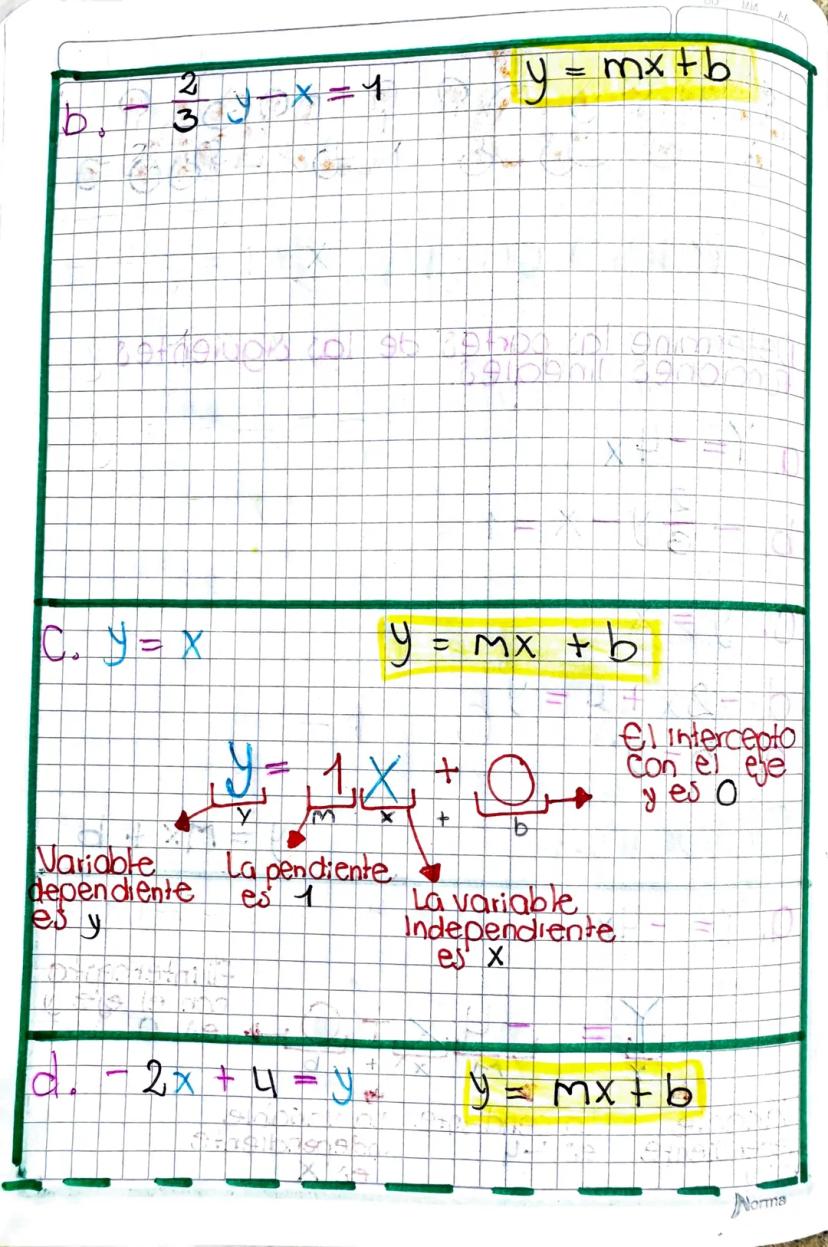 b. - 2/3 y - x = 1
y = mx + b
c. y = x
y = mx + b
y = 1 x + 0
y m x + b
El intercepto
con el eje
y es 0
Variable
dependiente
es y
La pendiente
es 1
La variable
Independiente
es x
d. - 2x + 4 = y
y = mx + b
Norma